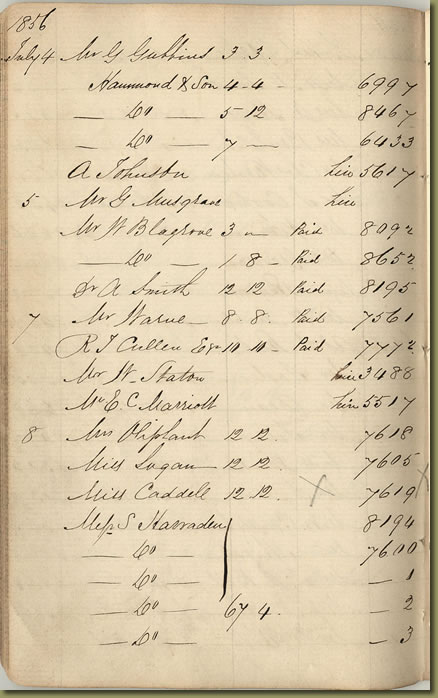 1856
July 4 Mr G Gubbins 3 3
Hammond & Son 4-4 - 6997
— Do — 5 12 8467
— Do — 7 — 6433
A Johnston Hire 5617
5 Mr G Musgrave Hire
Mr W Blagrove 3 — Paid 8092
— Do — 1 8 - Paid 8652
Dr A Smith 12 12 Paid 8195
7 Mr Warne — 8 8 Paid 7561
R J Cullen Esqr 10 10 - Paid 7772
Mr W. Staton Hire 3488
Mr E. C. Marriott Hire 5517
8 Mrs Oliphant 12 12 7618
Miss Logan — 12 12 7605
Miss Caddell 12 12 X 7619
Messrs Harraden 8194
— Do — 7600
— Do — — 1
— Do — 67 4 — 2
— Do — — 3